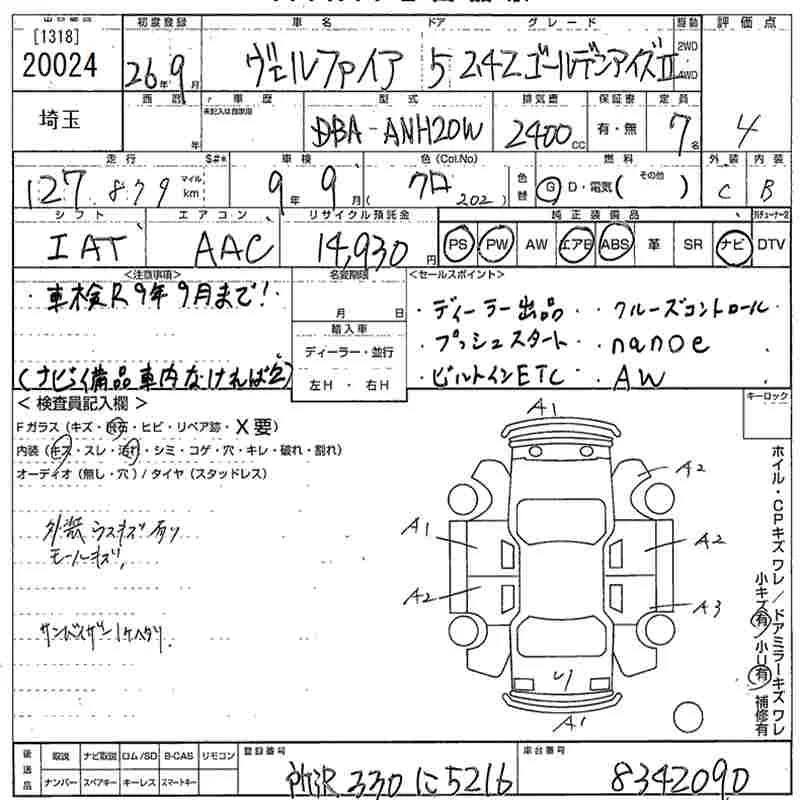 [1318]
20024
初度登録 車名 ドア グレード 駆動 評価点
26年9月 ヴェルファイア 5 242 ゴールデンアイズⅡ 2WD 4WD
埼玉
西暦 年 車歴 型式 排気量 保証書 定員
DBA-ANH20W 2400cc 有・無 7名 4
走行 S#* 車検 色(Col.No) 色替 燃料 外装 内装
127,879 マイル km 9年9月 クロ (202) G D・電気( その他 ) C B
シフト エアコン リサイクル預託金 純正装備品
IAT AAC 14,930円 PS PW AW エアB ABS 革 SR ナビ DTV
<注意事項> 名変期限 <セールスポイント>
・車検R9年9月まで!
月 日
・ディーラー出品 ・クルーズコントロール
輸入車
・プッシュスタート ・nanoe
ディーラー・並行
(ナビ、備品車内なければ)
左H・右H
・ビルトインETC ・AW
<検査員記入欄> キーロック
Fガラス(キズ・飛石・ヒビ・リペア跡・X要)
内装(キズ・スレ・汚れ・シミ・コゲ・穴・キレ・破れ・割れ)
オーディオ(無し・穴)/タイヤ(スタッドレス)
A1
A2
A1 A2
A2 A3
A1
外装 ウスキズ有り
モールキズ,
サンバイザー
ホイル・CPキズ ワレ/ドアミラーキズ ワレ
小キズ有/小U有 補修有
後送品 取説 ナビ取説 ロム/SD B-CAS リモコン
ナンバー スペアキー キーレス スマートキー
登録番号
所沢 330 に 5216
車台番号
8342090